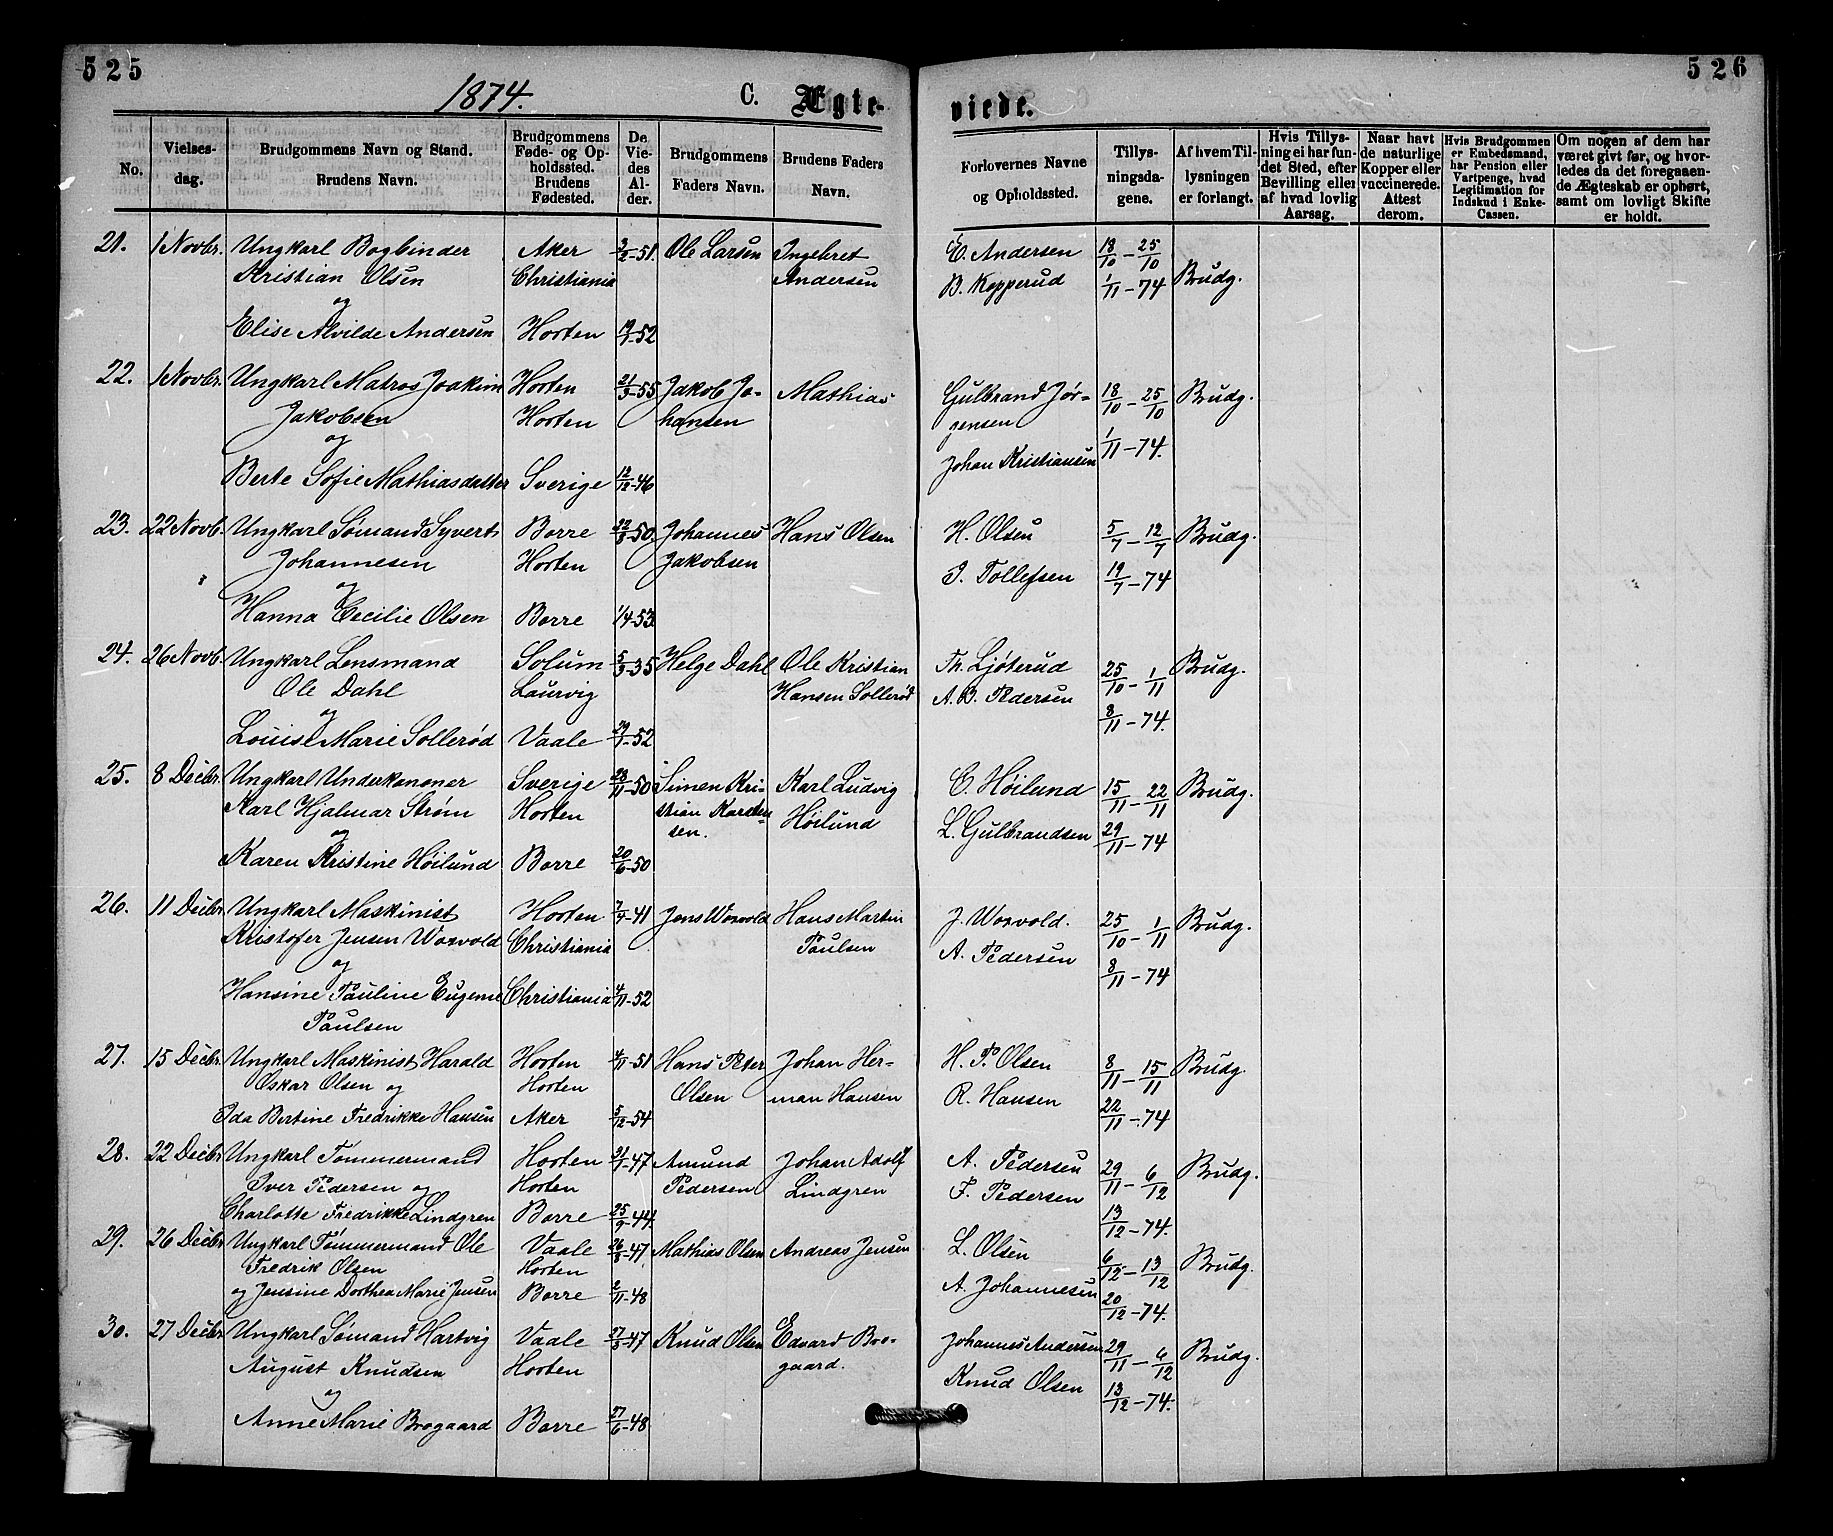 525
526
1874.
C. Ægte-
viede.
No.
Vielses-
dag.
Brudgommens Navn og Stand.
Brudens Navn.
Brudgommens
Føde- og Op-
holdssted.
Brudens
Fødested.
De
Vie-
des
Al-
der.
Brudgommens
Faders Navn.
Brudens Faders
Navn.
Forlovernes Navne
og Opholdssted.
Tillys-
ningsda-
gene.
Af hvem Til-
lysningen
er forlangt.
Hvis Tillys-
ning ei har fun-
det Sted, efter
Bevilling eller
af hvad lovlig
Aarsag.
Naar havt
de naturlige
Kopper eller
vaccinerede.
Attest
derom.
Hvis Brudgommen
er Embedsmand,
har Pension eller
Vartpenge, hvad
Legitimation for
Indskud i Enke-
Cassen.
Om nogen af dem har
været givt før, og hvor-
ledes da det foregaaen-
de Ægteskab er ophørt,
samt om lovligt Skifte
er holdt.
21. 1 Novbr. Ungkarl Bogbinder Aker 3/2-51. Ole Larsen Ingebret E. Andersen 18/10-25/10
Kristian Olsen Christiania Andersen B. Kopperud 1/11-74 Brudg.
og
Elise Alvilde Andersen Horten 19/7-52
22. 1 Novbr. Ungkarl Matros Joakim Horten 21/3-55 Jakob Jo- Mathias Gulbrand Jør- 18/10-25/10 Brudg.
Jakobsen Horten hansen gensen 1/11-74.
og
Berte Sofie Mathiasdatter Sverige 12/12-46 Johan Kristiansen
23. 22 Novb. Ungkarl Sømand Syvert Borre 22/8-50 Johannes Hans Olsen H. Olsen 5/7-12/7 Brudg.
Johannesen Horten Jakobsen J. Tollefsen 19/7-74
og
Hanna Cecilie Olsen Borre 1/4-53
24. 26 Novb. Ungkarl Lensmand Solum 5/3-35 Helge Dahl Ole Kristian Th. Ljøterud 25/10-1/11 Brudg.
Ole Dahl Laurvig Hansen Sollerød A. B. Pedersen 8/11-74.
og
Louise Marie Sollerød Vaale 29/7-52
25. 8 Decbr. Ungkarl Underkanoner Sverige 28/11-50 Simen Kri- Karl Ludvig E. Høilund 15/11-22/11 Brudg.
Karl Hjalmar Strøm Horten stian Karsten- Høilund L. Gulbrandsen 29/11-74
og sen.
Karen Kristine Høilund Borre 20/6-50
26. 11 Decbr. Ungkarl Maskinist Horten 7/7-41 Jens Worvold Hans Martin J. Worvold. 25/10-1/11 Brudg.
Kristofer Jensen Worvold Christiania Paulsen A. Pedersen 8/11-74
og
Hansine Pauline Eugenie Christiania 4/11-52
Paulsen
27. 15 Decbr. Ungkarl Maskinist Harald Horten 4/11-51 Hans Peter Johan Her- H. P. Olsen 8/11-15/11 Brudg.
Oskar Olsen og Horten Olsen man Hansen R. Hansen 22/11-74
Ida Bertine Fredrikke Hansen Aker 5/12-54
28. 22 Decbr. Ungkarl Tømmermand Horten 21/7-47 Amund Johan Adolf A. Pedersen 29/11-6/12 Brudg.
Iver Pedersen og Horten Pedersen Lindgren F. Pedersen 13/12-74.
Charlotte Fredrikke Lindgren Borre 25/9-44
29. 26 Decbr. Ungkarl Tømmermand Ole Vaale 26/8-47 Mathias Olsen Andreas Jensen L. Olsen 6/12-13/12 Brudg.
Fredrik Olsen Horten A. Johannesen 20/12-74.
og Jensine Dorthea Marie Jensen Borre 2/11-48
30. 27 Decbr. Ungkarl Sømand Hartvig Vaale 27/8-47 Knud Olsen Edvard Bro- Johannes Andersen 29/11-6/12 Brudg.
August Knudsen Horten gaard. Knud Olsen 13/12-74.
og
Anne Marie Brogaard Borre 27/6-48